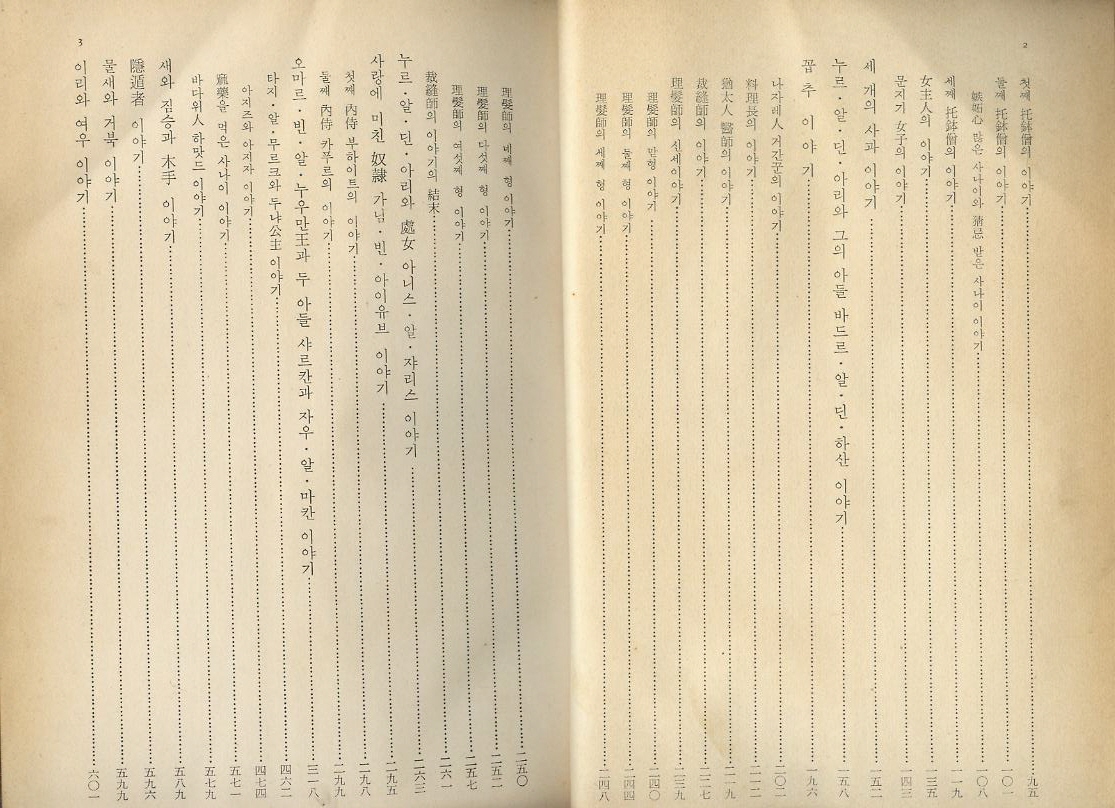 2
첫째 托鉢僧의 이야기 九五
둘째 托鉢僧의 이야기 一〇一
嫉妬心 많은 사나이와 猜忌 받은 사나이 이야기 一〇八
세째 托鉢僧의 이야기 一一九
女主人의 이야기 一三五
문지기 女子의 이야기 一四三
세 개의 사과 이야기 一五二
누르·알·딘·아리와 그의 아들 바드르·알·딘·하산 이야기 一五八
꼽추 이야기 一九六
나자레人 거간꾼의 이야기 二〇二
料理長의 이야기 二一二
猶太人 醫師의 이야기 二一九
裁縫師의 이야기 二二七
理髮師의 신세이야기 二三九
理髮師의 맏형 이야기 二四〇
理髮師의 둘째 형 이야기 二四四
理髮師의 세째 형 이야기 二四八
3
理髮師의 네째 형 이야기 二五〇
理髮師의 다섯째 형 이야기 二五二
理髮師의 여섯째 형 이야기 二五七
裁縫師의 이야기의 結末 二六一
누르·알·딘·아리와 處女 아니스·알·쟈리스 이야기 二六三
사랑에 미친 奴隷 가님·빈·아이유브 이야기 二九五
첫째 內侍 부하이트의 이야기 二九八
둘째 內侍 카푸르의 이야기 二九九
오마르·빈·알·누우만王과 두 아들 샤르칸과 자우·알·마칸 이야기 三一八
타지·알·무르크와 두냐公主 이야기 四六二
아지즈와 아지자 이야기 四七四
痲藥을 먹은 사나이 이야기 五七一
바다위人 하맛드 이야기 五七七
새와 짐승과 木手 이야기 五八九
隱遁者 이야기 五九六
물새와 거북 이야기 五九九
이리와 여우 이야기 六〇一